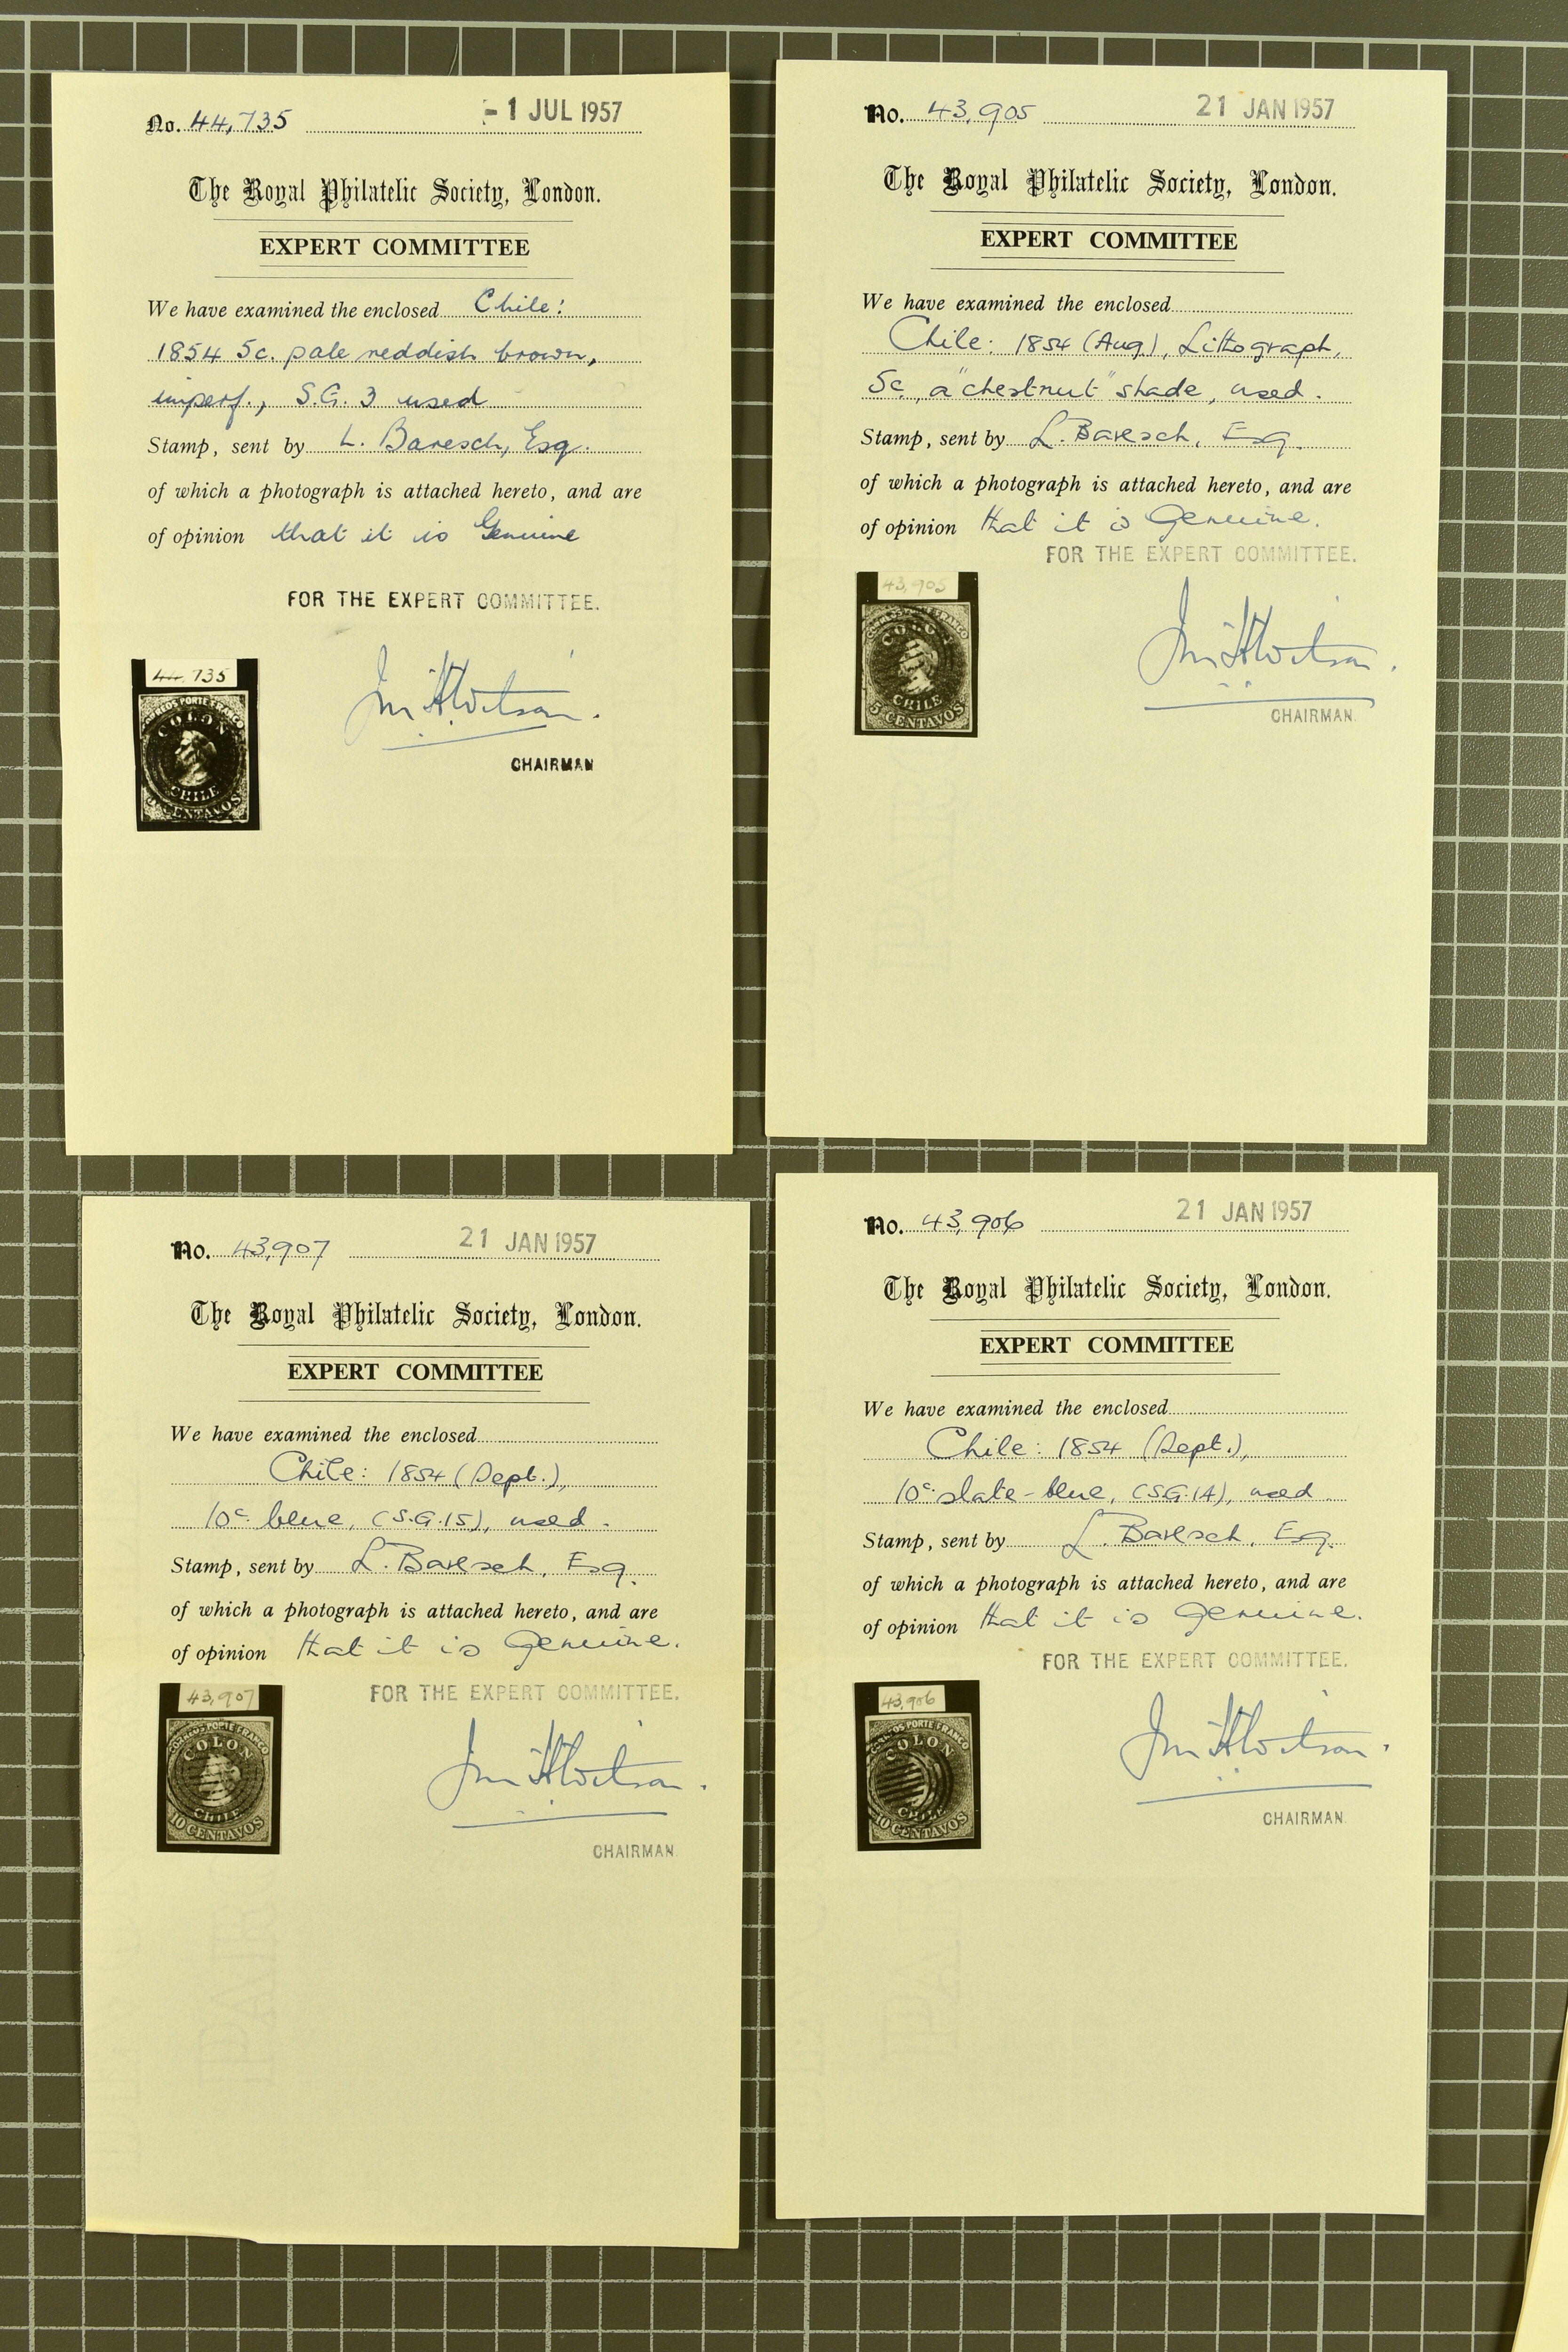 No. 44,735 - 1 JUL 1957
The Royal Philatelic Society, London.
EXPERT COMMITTEE
We have examined the enclosed Chile:
1854 5c. pale reddish brown,
imperf., S.G. 3 used
Stamp, sent by L. Baresch, Esq.
of which a photograph is attached hereto, and are
of opinion that it is Genuine
FOR THE EXPERT COMMITTEE.
44,735
CORREOS PORTE FRANCO
COLON
CHILE
CENTAVOS
CHAIRMAN
No. 43,905 21 JAN 1957
The Royal Philatelic Society, London.
EXPERT COMMITTEE
We have examined the enclosed
Chile: 1854 (Aug.), Lithograph,
5c., a "chestnut" shade, used.
Stamp, sent by L. Baresch, Esq.
of which a photograph is attached hereto, and are
of opinion that it is Genuine.
FOR THE EXPERT COMMITTEE.
43,905
COLON
CHILE
5 CENTAVOS
CHAIRMAN.
No. 43,907 21 JAN 1957
The Royal Philatelic Society, London.
EXPERT COMMITTEE
We have examined the enclosed
Chile: 1854 (Sept.),
10c. blue, (S.G.15), used.
Stamp, sent by L. Baresch, Esq.
of which a photograph is attached hereto, and are
of opinion that it is Genuine.
FOR THE EXPERT COMMITTEE.
43,907
CORREOS PORTE FRANCO
COLON
CHILE
10 CENTAVOS
CHAIRMAN.
No. 43,906 21 JAN 1957
The Royal Philatelic Society, London.
EXPERT COMMITTEE
We have examined the enclosed
Chile: 1854 (Sept.),
10c. slate-blue, (S.G.14), used.
Stamp, sent by L. Baresch, Esq.
of which a photograph is attached hereto, and are
of opinion that it is Genuine.
FOR THE EXPERT COMMITTEE.
43,906
CORREOS PORTE FRANCO
COLON
CHILE
10 CENTAVOS
CHAIRMAN.